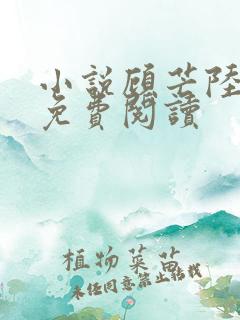 小說顧芒陸
免費閱讀
植物菜苗
未经同意禁止转载